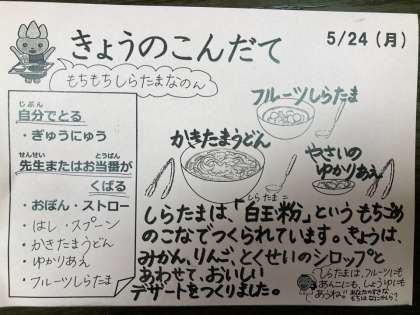 きょうのこんだて
5/24(月)
もちもちしらたまなのん
じぶん
自分でとる
・ぎゅうにゅう
せんせい とうばん
先生またはお当番が
くばる
・おぼん・ストロー
・はし・スプーン
・かきたまうどん
・ゆかりあえ
・フルーツしらたま
フルーツしらたま
かきたまうどん
やさいの
ゆかりあえ
しらたまこ
しらたまは、「白玉粉」という もちごめ
のこなでつくられています。きょうは、
みかん、りんご、とくせいのシロップと
あわせて、おいしい
デザートをつくりました。
しらたまは、フルーツにも
あんこにも、しょうゆにも
あうね。
あなたのすきな
もちはなにかしら?